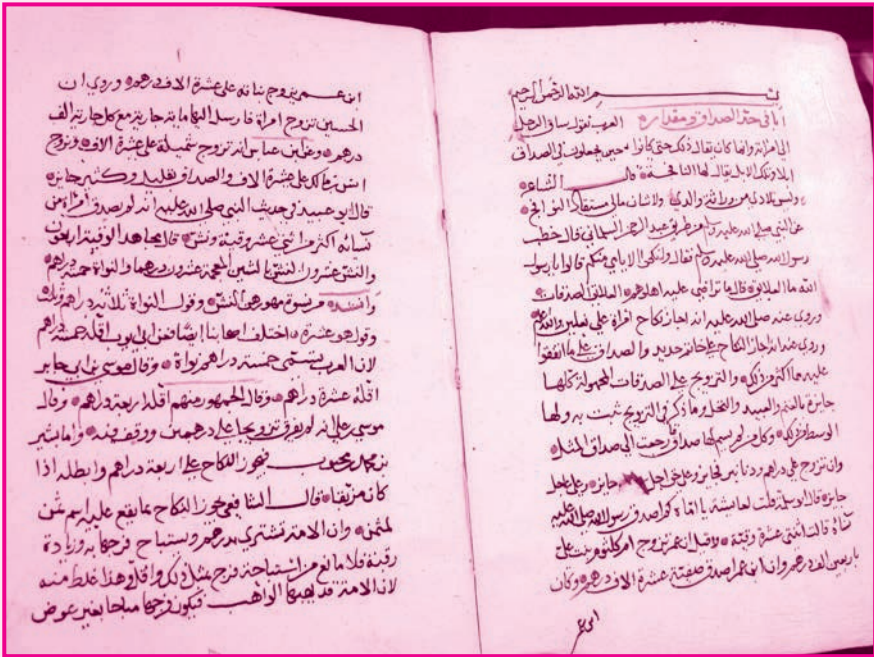 بسم الله الرحمن الرحيم
باب في حد الصداق ومقداره العرب تقول ساق الرجل
الى امرأته وانما كان يقال ذلك حتى كانوا حين يجعلون في الصداق
ابلا وتلك الابل يقال لها النافجة قال الشاعر
وليس تلادي من وراثة والدي ولا شان مالي مستفاد النوافج
عن النبي صلى الله عليه وسلم من طريق عبد الرحمن السلماني قال خطب
رسول الله صلى الله عليه وسلم فقال وانكحوا الايامى منكم قالوا يا رسول
الله ما العلائق قال ما تراضى عليه اهلوهم العلائق الصدقات
وروي عنه صلى الله عليه انه اجاز نكاح امرأة على نعلين والله اعلم
وروي عنه انه اجاز النكاح على خاتم حديد والصداق على ما اتفقوا
عليه ما اكثر من ذلك والتزويج على الصدقات المجهولة كلها
جائزة مالغنم والعبيد والنخل وما ذكر في التزويج ثبت به ولها
الوسط من ذلك وكل من لم يرسم لها صداق رجعت الى صداق المثل
وان تزوج على دراهم ودنانير فجايز وعلى اجل جايز وعلى عاجل
جايز قال ابو سلمة قلت لعائشة يا اماه كم اصدق رسول الله صلى الله عليه
نساءه قالت اثنتي عشرة وقية وقيل ان عمر تزوج ام كلثوم بنت علي
باربعين الف درهم وان ابن عمر اصدق صفية عشرة الاف درهم وكان
ابن عمر
ابن عمر يزوج بناته على عشرة الاف درهم وروي ان
الحسين تزوج امرأة فارسل اليها ماية جارية مع كل جارية الف
درهم وعن ابن عباس انه تزوج شميلة على عشرة الاف وتزوج
انس بن مالك على عشرة الاف والصداق بقليل وكثير جايز
قال ابو عبيد في حديث النبي صلى الله عليه انه لم يصدق امرأة من
نسائه اكثر من اثنتي عشر وقية ونش قال مجاهد الوقية اربعون
والنش عشرون النش بالشين المعجمة عشرون درهما والنواة خمسة دراهم
وانشد من نسوة مهورهن النش وقول النواة ثلاثة دراهم وثلث
وقول هو عشرة اختلف اصحابنا ايضا فعن ابي ايوب اقله خمسة دراهم
لان العرب تسمى خمسة دراهم نواة وقال موسى بن ابي جابر
اقله عشرة دراهم وقال الجمهور منهم اقله اربعة دراهم وقال
موسى بن علي انه لم يفرق تزويجا على درهمين ووقف فيه واما بشير
بن محمد بن محبوب فيجوز النكاح على اربعة دراهم وابطله اذا
كانه مزيفا قال الشافعي يجوز النكاح بما يقع عليه اسم ثمن
لمثمن وان الامة تشترى بدرهم ويستباح فرجها به وزيادة
رقبة فلا مانع من استباحة فرج مثل ذلك واقل هذا غلط منه
لان الامة قد يهبها الواهب فيكون فرجها مباحا بغير عوض